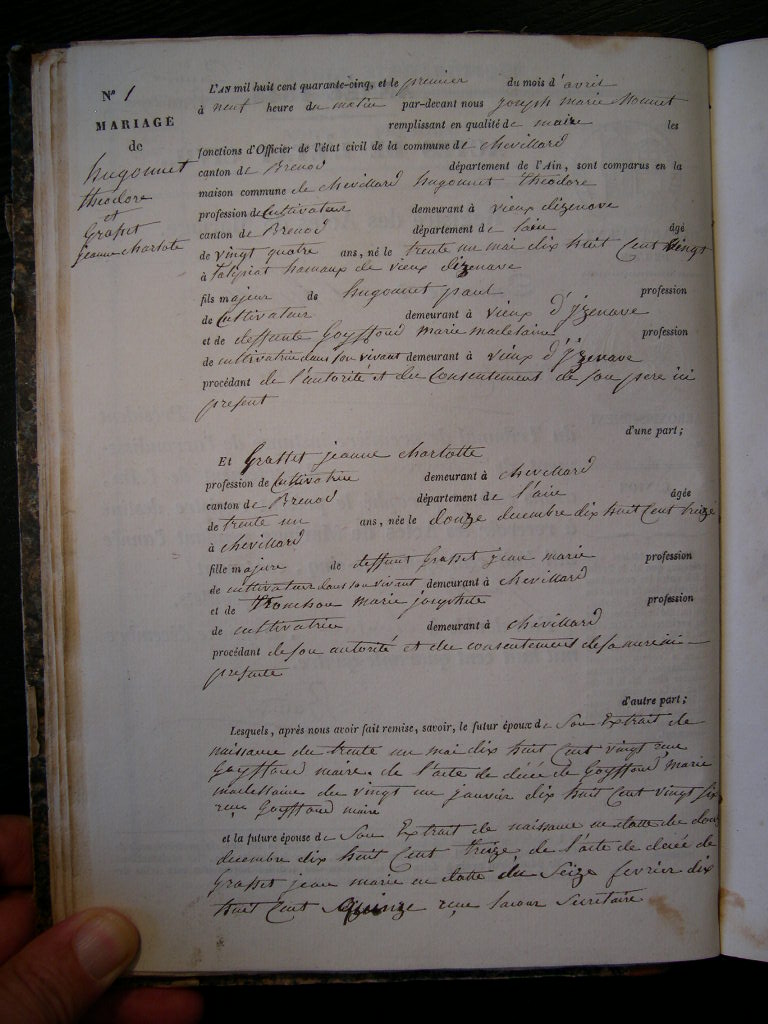 N° 1
MARIAGE
de
hugonnet
théodore
et
Grasset
jeanne charlote
L'AN mil huit cent quarante-cinq, et le premier du mois d'avril
à neuf heure du matin par-devant nous joseph marie Monnet
remplissant en qualité de maire les
fonctions d'Officier de l'état civil de la commune de chevillard
canton de Brenod département de l'Ain, sont comparus en la
maison commune de chevillard hugonnet théodore
profession de Cultivateur demeurant à vieux dizenave
canton de Brenod département de l'ain âgé
de vingt quatre ans, né le trente un mai dix huit Cent vingt
à Talipiat hamaux de vieux dizenave
fils majeur de hugonnet paul profession
de Cultivateur demeurant à vieux d'yzenave
et de deffunte Goyffond marie madelaine profession
de cultivatrice dans son vivant demeurant à vieux d'yzenave
procédant de l'autorité et du Consentement de son pere ici
présent
d'une part;
Et Grasset jeanne charlotte
profession de Cultivatrice demeurant à chevillard
canton de Brenod département de l'ain âgée
de trente un ans, née le douze decembre dix huit Cent treize
à chevillard
fille majeure de deffunt Grasset jean marie profession
de cultivateur dans son vivant demeurant à chevillard
et de marie josephete profession
de cultivatrice demeurant à chevillard
procédant de son autorité et du consentement de sa mere ici
présente
d'autre part;
Lesquels, après nous avoir fait remise, savoir, le futur époux de Son Extrait de
naissance du trente un mai dix huit Cent vingt reçu
Goyffond maire. de l'acte de décé de Goyffond marie
madelaine du vingt un janvier dix huit Cent vingt six
reçu Goyffond maire
et la future épouse de Son Extrait de naissance en datte du douze
decembre dix huit Cent treize de l'acte de décé de
Grasset jean marie en datte du Seize fevrier dix
huit Cent quinze reçu Secretaire